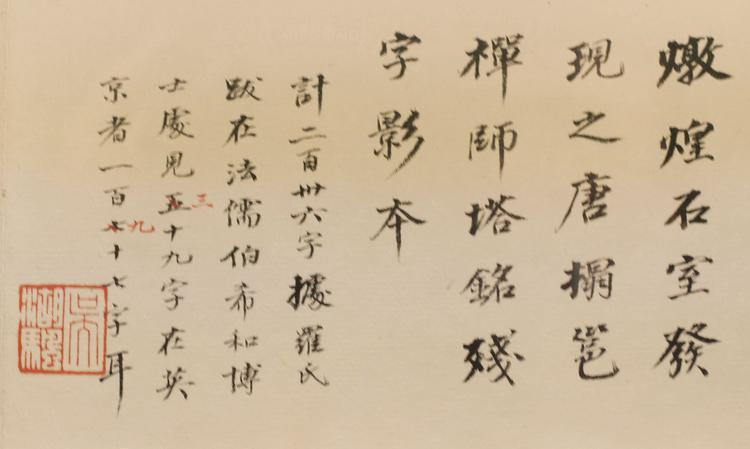 燉煌石室發
現之唐搨邕
禪師塔銘殘
字影本
計二百卅六字據羅氏
跋在法儒伯希和博
士處見五十九字在英
三
京者一百七十七字耳
九
吳湖颿